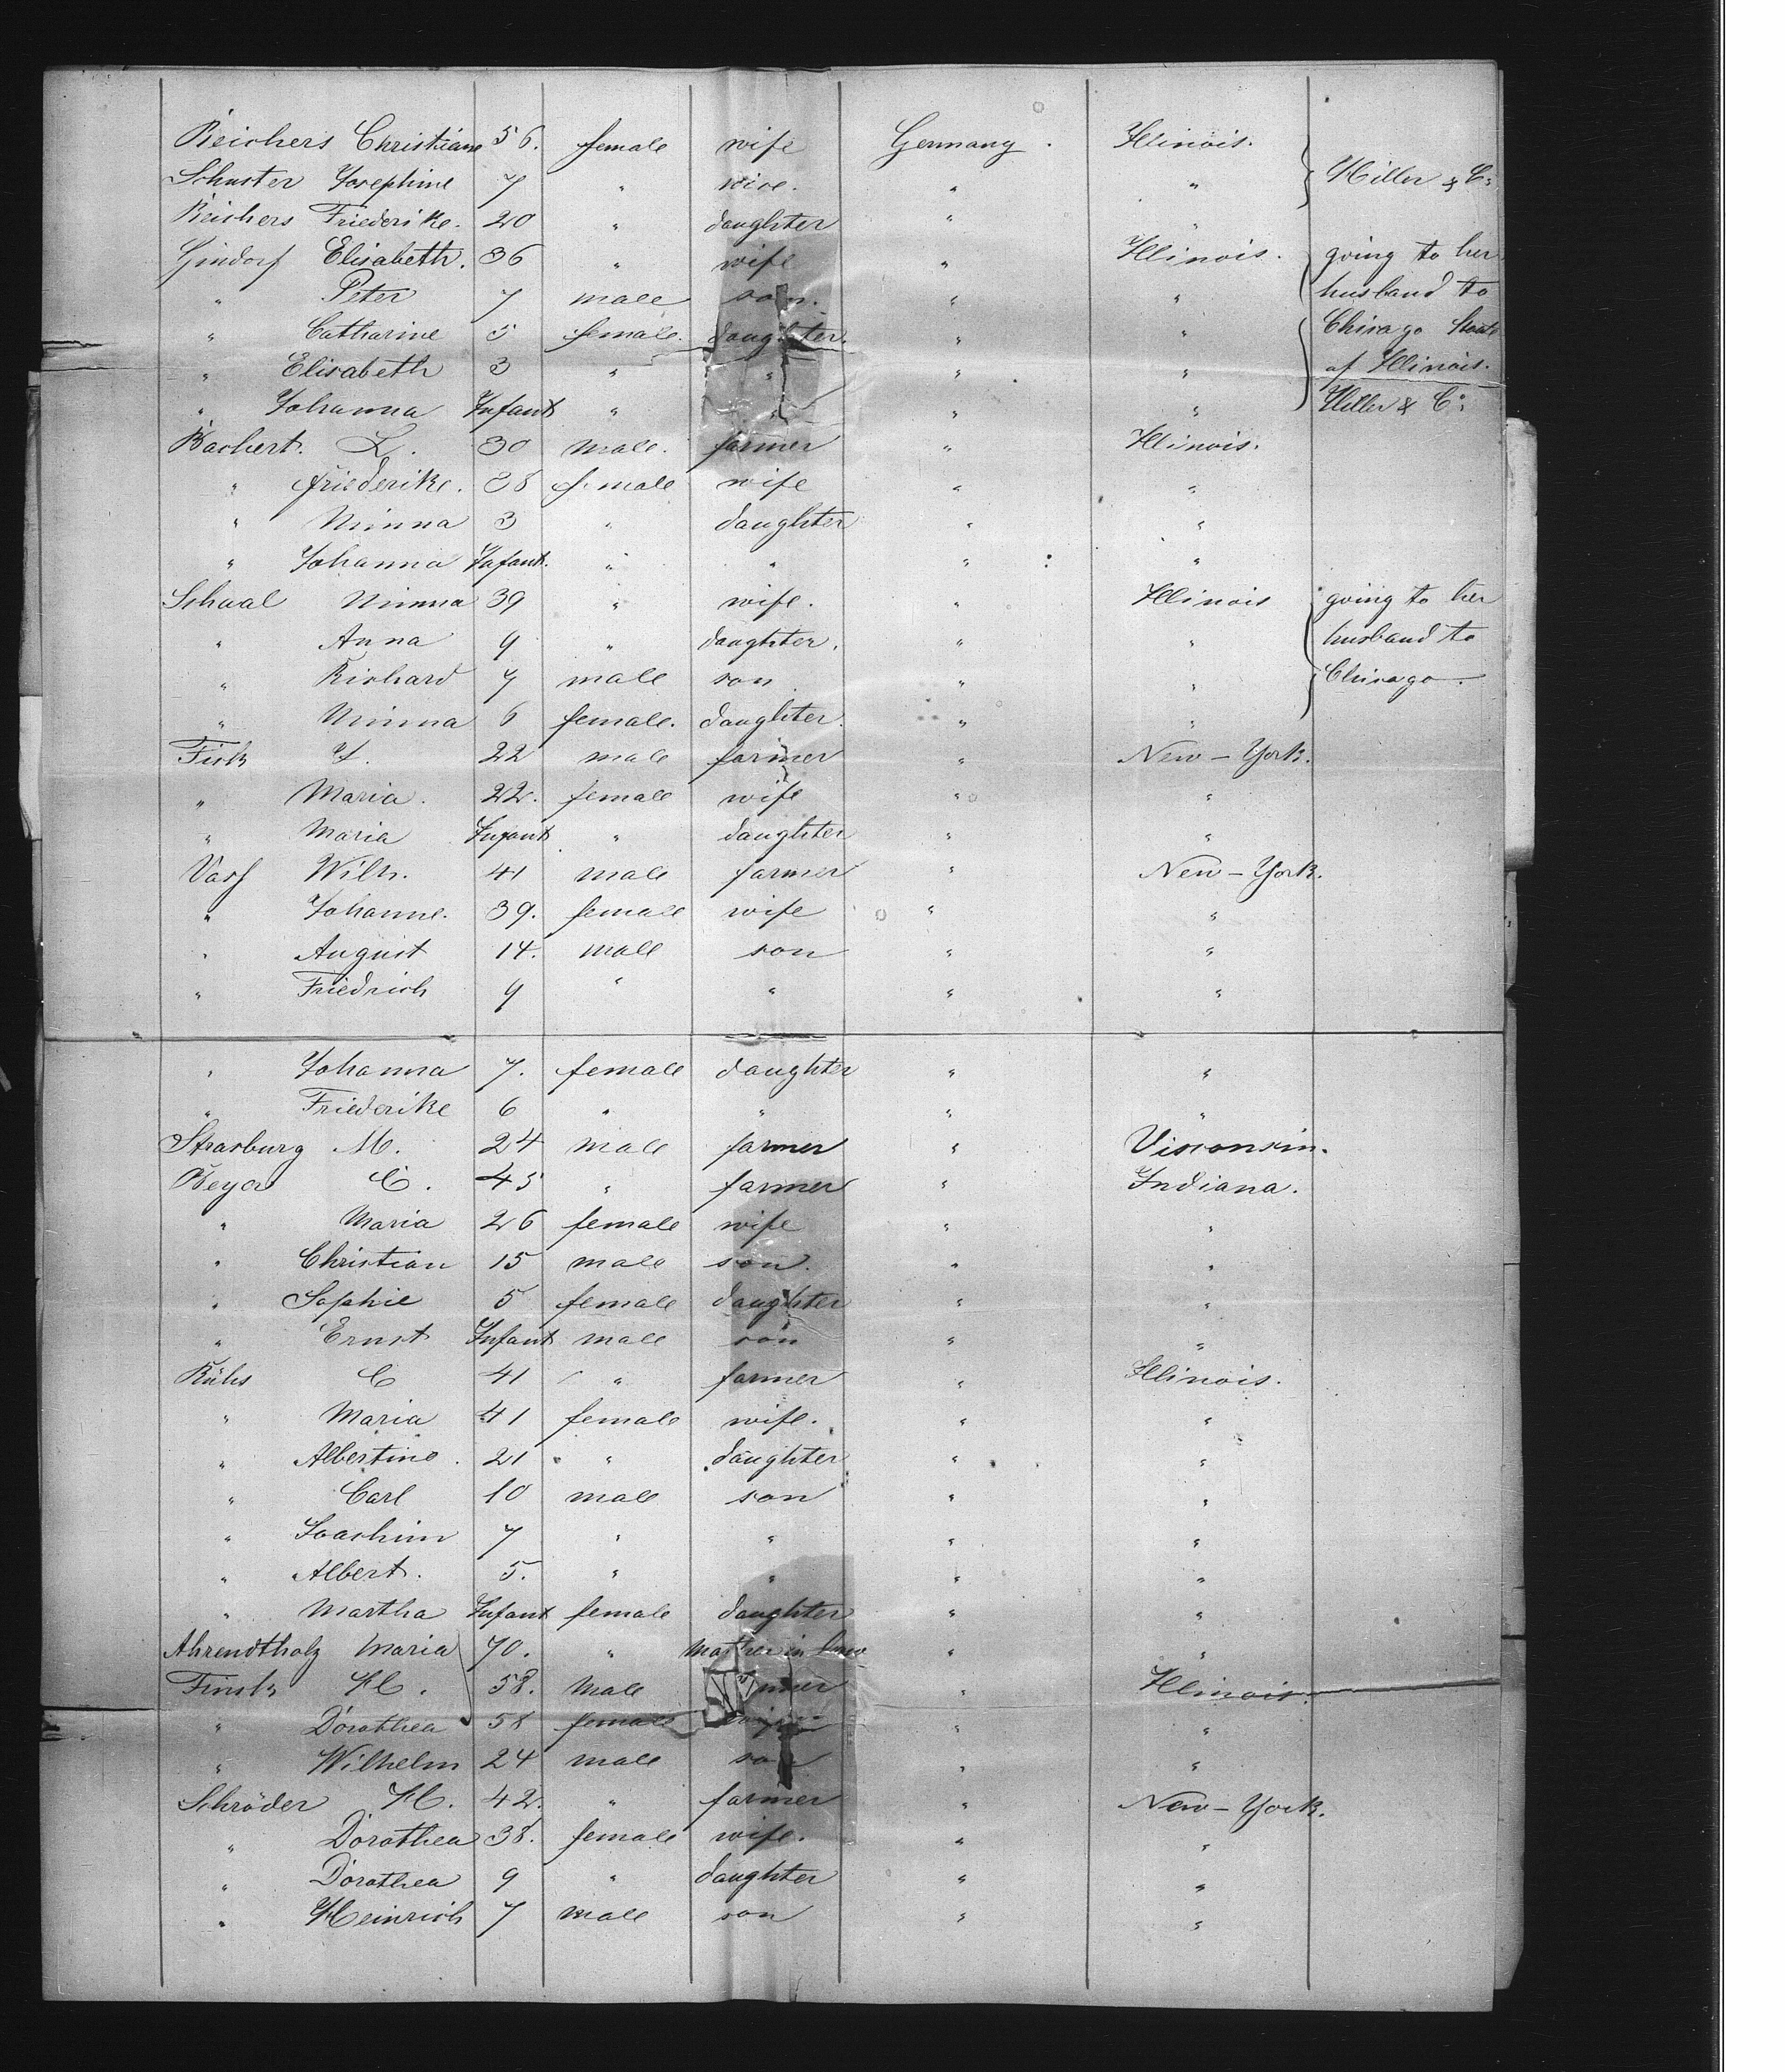 Reichers Christiane 56. female wife Germany. Illinois.
Schuster Josephine 7 " niece. " " Hiller & Co:
Reichers Friederike. 20 " daughter " "
Gindorf Elisabeth. 36 " wife " Illinois. going to her
" Peter 7 male son. " " husband to
" Catharine 5 female. daughter. " " Chicago State
" Elisabeth 3 " " " " of Illinois.
" Johanna Infant " " " " Hiller & Co:
Bachert. L. 30 male. farmer " Illinois.
" Friederike. 38 female wife " "
" Minna 3 " daughter " "
" Johanna Infant. " " " "
Schaal Minna 39 " wife. " Illinois going to her
" Anna 9 " daughter. " " husband to
" Richard 7 male son " " Chicago.
" Minna 6 female. daughter. " "
Fick J. 22 male farmer " New-York.
" Maria. 22. female wife " "
" Maria Infant " daughter " "
Wilh. 41 male farmer " New-York.
" Johanne. 39. female wife " "
" August 14. male son " "
" Friedrich 9 " " " "
" Johanna 7. female daughter " "
" Friederike 6 " " " "
Strasburg M. 24 male farmer " Visconsin.
Beyer C. 45 " farmer " Indiana.
" Maria 26 female wife " "
" Christian 15 male son. " "
" Sophie 5 female daughter " "
" Ernst Infant male son " "
Rühs C 41 " farmer " Illinois.
" Maria 41 female wife. " "
" Albertine. 21 " daughter " "
" Carl 10 male son " "
" Joachim 7 " " " "
" Albert. 5. " " " "
" Martha Infant female daughter " "
Ahrendtholz Maria 70. " Mother in law " "
Finck H. 58. male farmer " Illinois.
" Dorothea 58 female wife " "
" Wilhelm 24 male son " "
Schröder H. 42. " farmer " New-York.
" Dorothea 38. female wife. " "
" Dorothea 9 " daughter " "
" Heinrich 7 male son " "